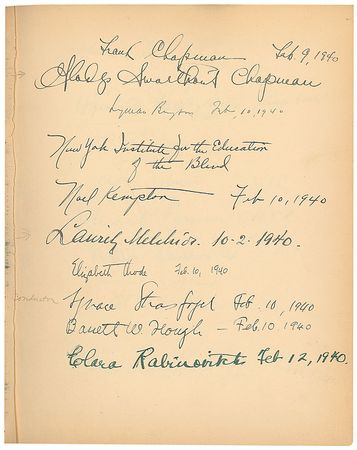 Frank Chapman Feb. 9, 1940
Gladys Swarthout Chapman
Lyman Feb, 10, 1940
New York Institute for the Education
of the Blind
Noel Kempton Feb 10, 1940
Lauritz Melchior. 10-2-1940.
Elizabeth Thode Feb. 10, 1940
conductor
Ignace Strasfogel Feb. 10, 1940
Barrett W. Hough – Feb. 10 1940
Clara Rabinovitch Feb 12, 1940.